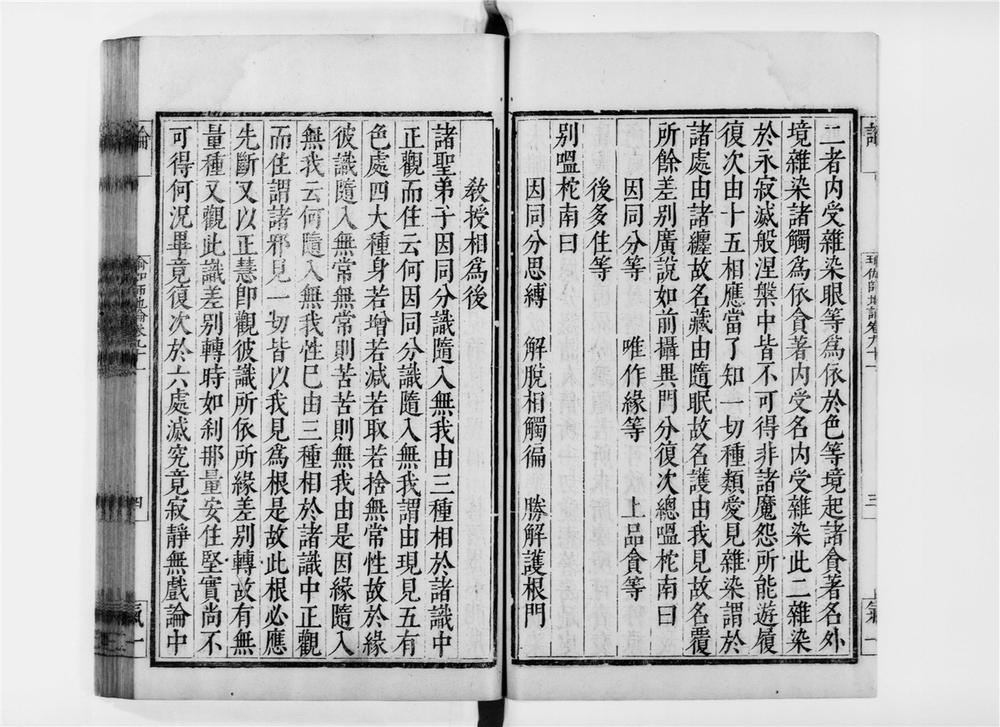 二者內受雜染眼等爲依於色等境起諸貪著名外
境雜染諸觸爲依貪著內受名內受雜染此二雜染
於永寂滅般涅槃中皆不可得非諸魔怨所能遊履
復次由十五相應當了知一切種類愛見雜染謂於
諸處由諸纏故名藏由隨眠故名護由我見故名覆
所餘差別廣說如前攝異門分復次總嗢柁南曰
因同分等 唯作緣等 上品貪等
後多住等
別嗢柁南曰
因同分思縛 解脫相觸徧 勝解護根門
教授相爲後
諸聖弟子因同分識隨入無我由三種相於諸識中
正觀而住云何因同分識隨入無我謂由現見五有
色處四大種身若增若減若取若捨無常性故於緣
彼識隨入無常無常則苦苦則無我由是因緣隨入
無我云何隨入無我性已由三種相於諸識中正觀
而住謂諸邪見一切皆以我見爲根是故此根必應
先斷又以正慧即觀彼識所依所緣差別轉故有無
量種又觀此識差別轉時如剎那量安住堅實尚不
可得何況畢竟復次於六處滅究竟寂靜無戲論中
論
四